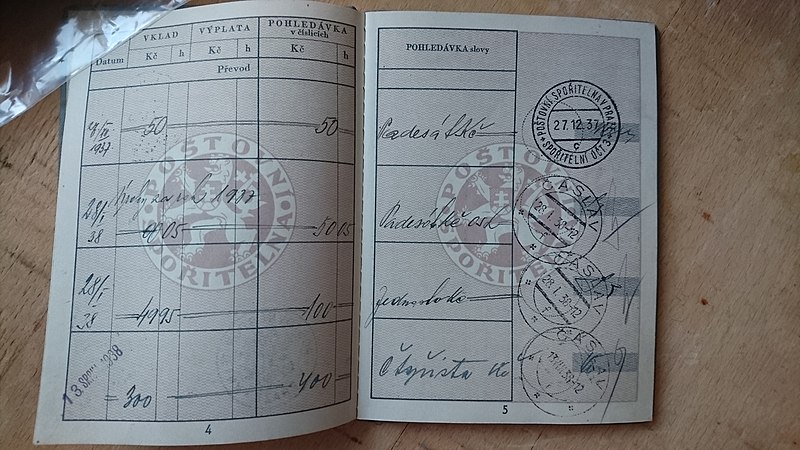 Datum
VKLAD
VÝPLATA
POHLEDÁVKA
v číslicích
Kč h Kč h Kč h
Převod
1937 50 50
POŠTOVNÍ
SPOŘITELNA
Úroky za rok 1937
28/I 38 0 05 50 05
28/I 38 49 95 100
13. SRPNA 1938
300 400
4
POHLEDÁVKA slovy
Padesát Kč
POŠTOVNÍ SPOŘITELNA V PRAZE
27.12.37
SPOŘITELNÍ ODD. 3
c
Padesát Kč
ČÁSLAV
28.I.38-12
f
Jednosto Kč
ČÁSLAV
28.I.38-12
f
Čtyřista Kč
ČÁSLAV
POŠTOVNÍ
SPOŘITELNA
5